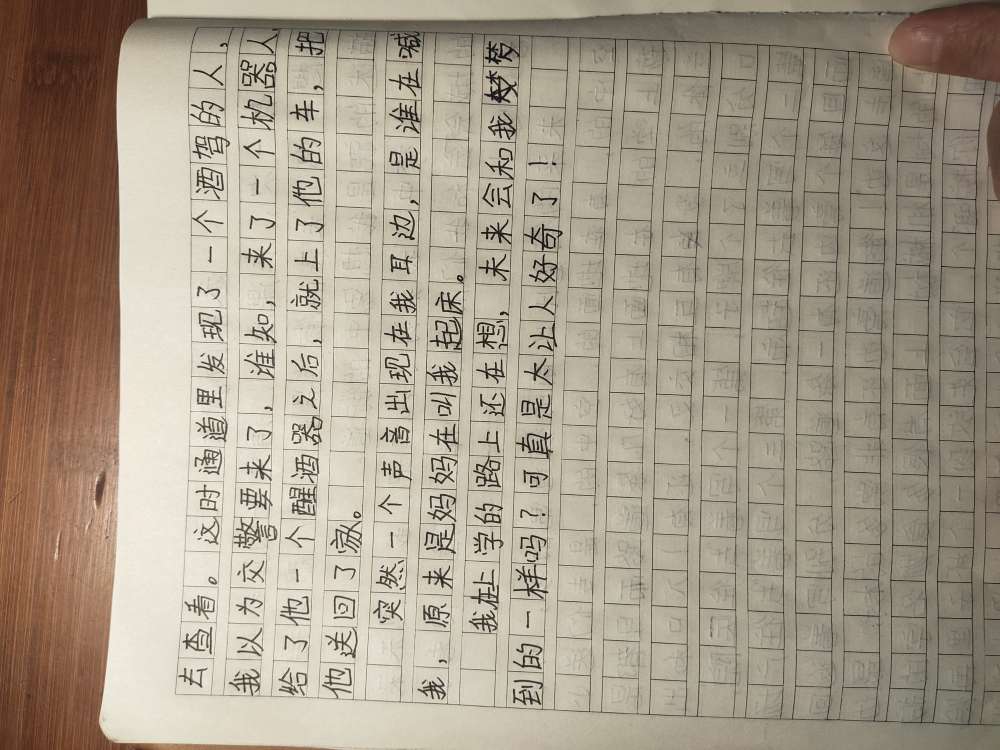 去查看。这时通道里发现了一个酒驾的人，
我以为交警要来了，谁知，来了一个机器人
给了他一个醒酒器之后，就上了他的车，把
他送回了家。
突然一个声音出现在我耳边，是谁在喊
我，原来是妈妈在叫我起床。
我在上学的路上还在想，未来会和我梦
到的一样吗？可真是太让人好奇了！